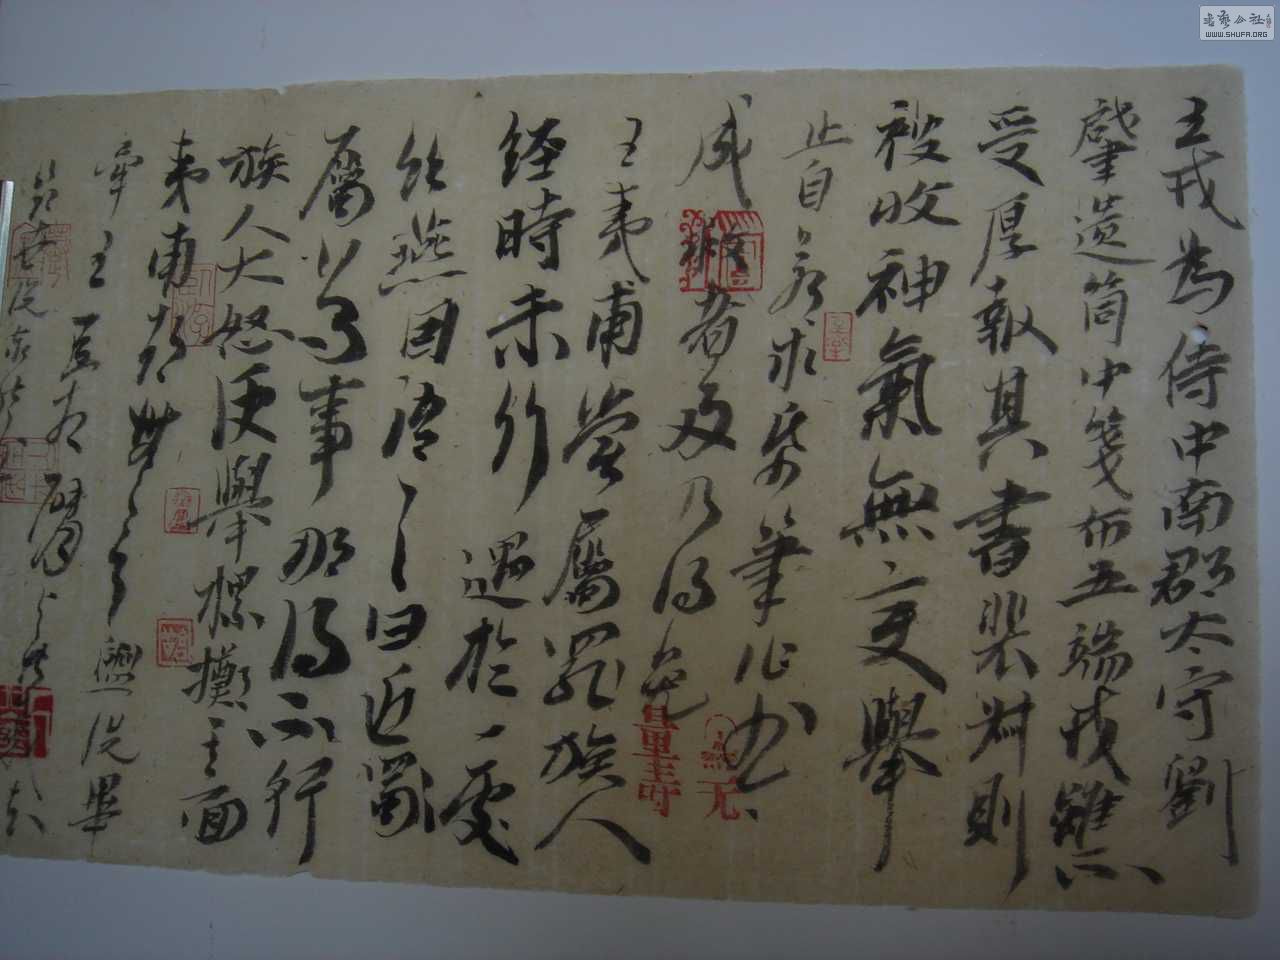 王戎為侍中南郡太守劉
肇遺筒中箋布五端戎雖不
受厚報其書裴叔則
被收神氣無變舉
止自若求紙筆作書
成救者多乃得免
王夷甫嘗屬族人
經時未行遇於一處
飲燕因語之曰近
屬尊事那得不行
族人大怒便舉樏擲其面
夷甫都無言盥洗畢
牽王丞相臂
量壽
書藝公社
WWW.SHUFA.ORG